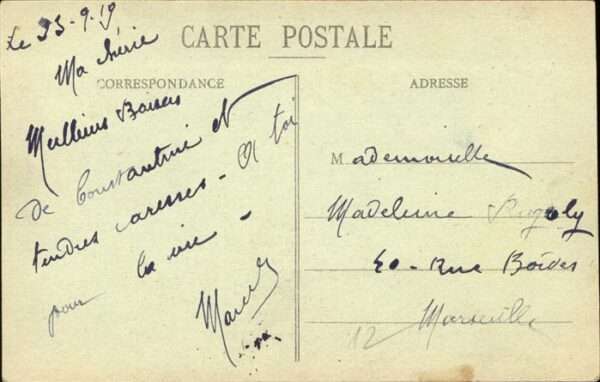 CARTE POSTALE
CORRESPONDANCE
ADRESSE
Le 23-9-19
Ma chérie
Meilleurs Baisers
de Constantine et
tendres caresses - A toi
pour la vie -
Marcel
Mademoiselle
Madeleine
40 - Rue Boïdes
12 Marseille